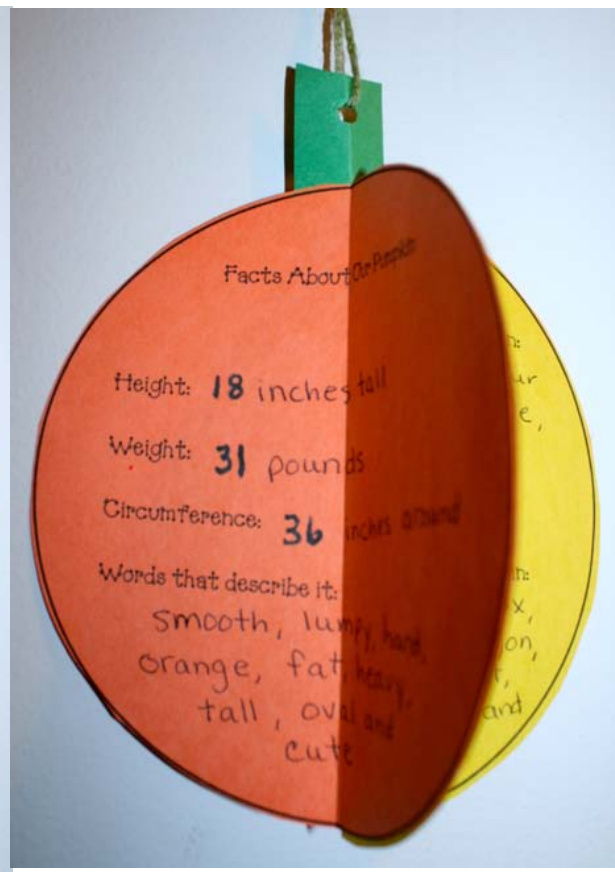 Facts About Our Pumpkin
Height: 18 inches tall
Weight: 31 pounds
Circumference: 36 inches around
Words that describe it:
smooth, lumpy, hard,
orange, fat, heavy,
tall, oval and
cute
and